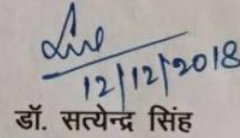 12/12/2018
डॉ. सत्येन्द्र सिंह